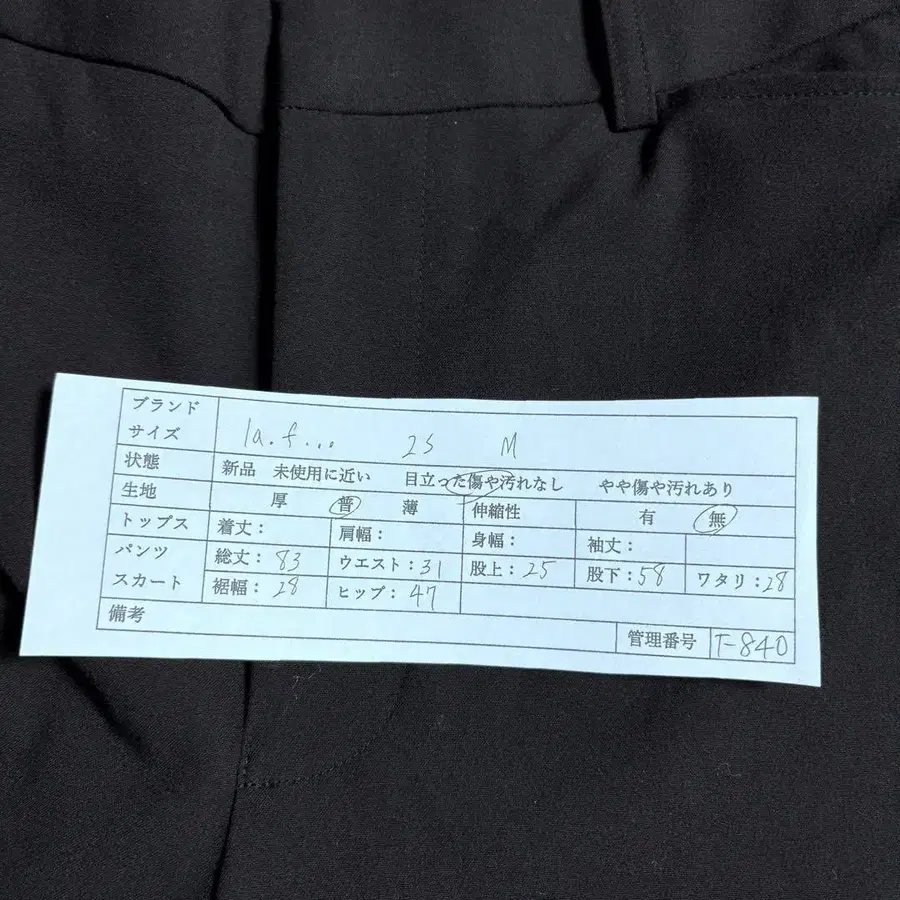 ブランド
サイズ la.f... 2S M
状態 新品 未使用に近い 目立った傷や汚れなし やや傷や汚れあり
生地 厚 普 薄 伸縮性 有 無
トップス 着丈: 肩幅: 身幅: 袖丈:
パンツ 総丈: 83 ウエスト:31 股上:25 股下:58 ワタリ:28
スカート 裾幅: 28 ヒップ: 47
備考
管理番号 T-840